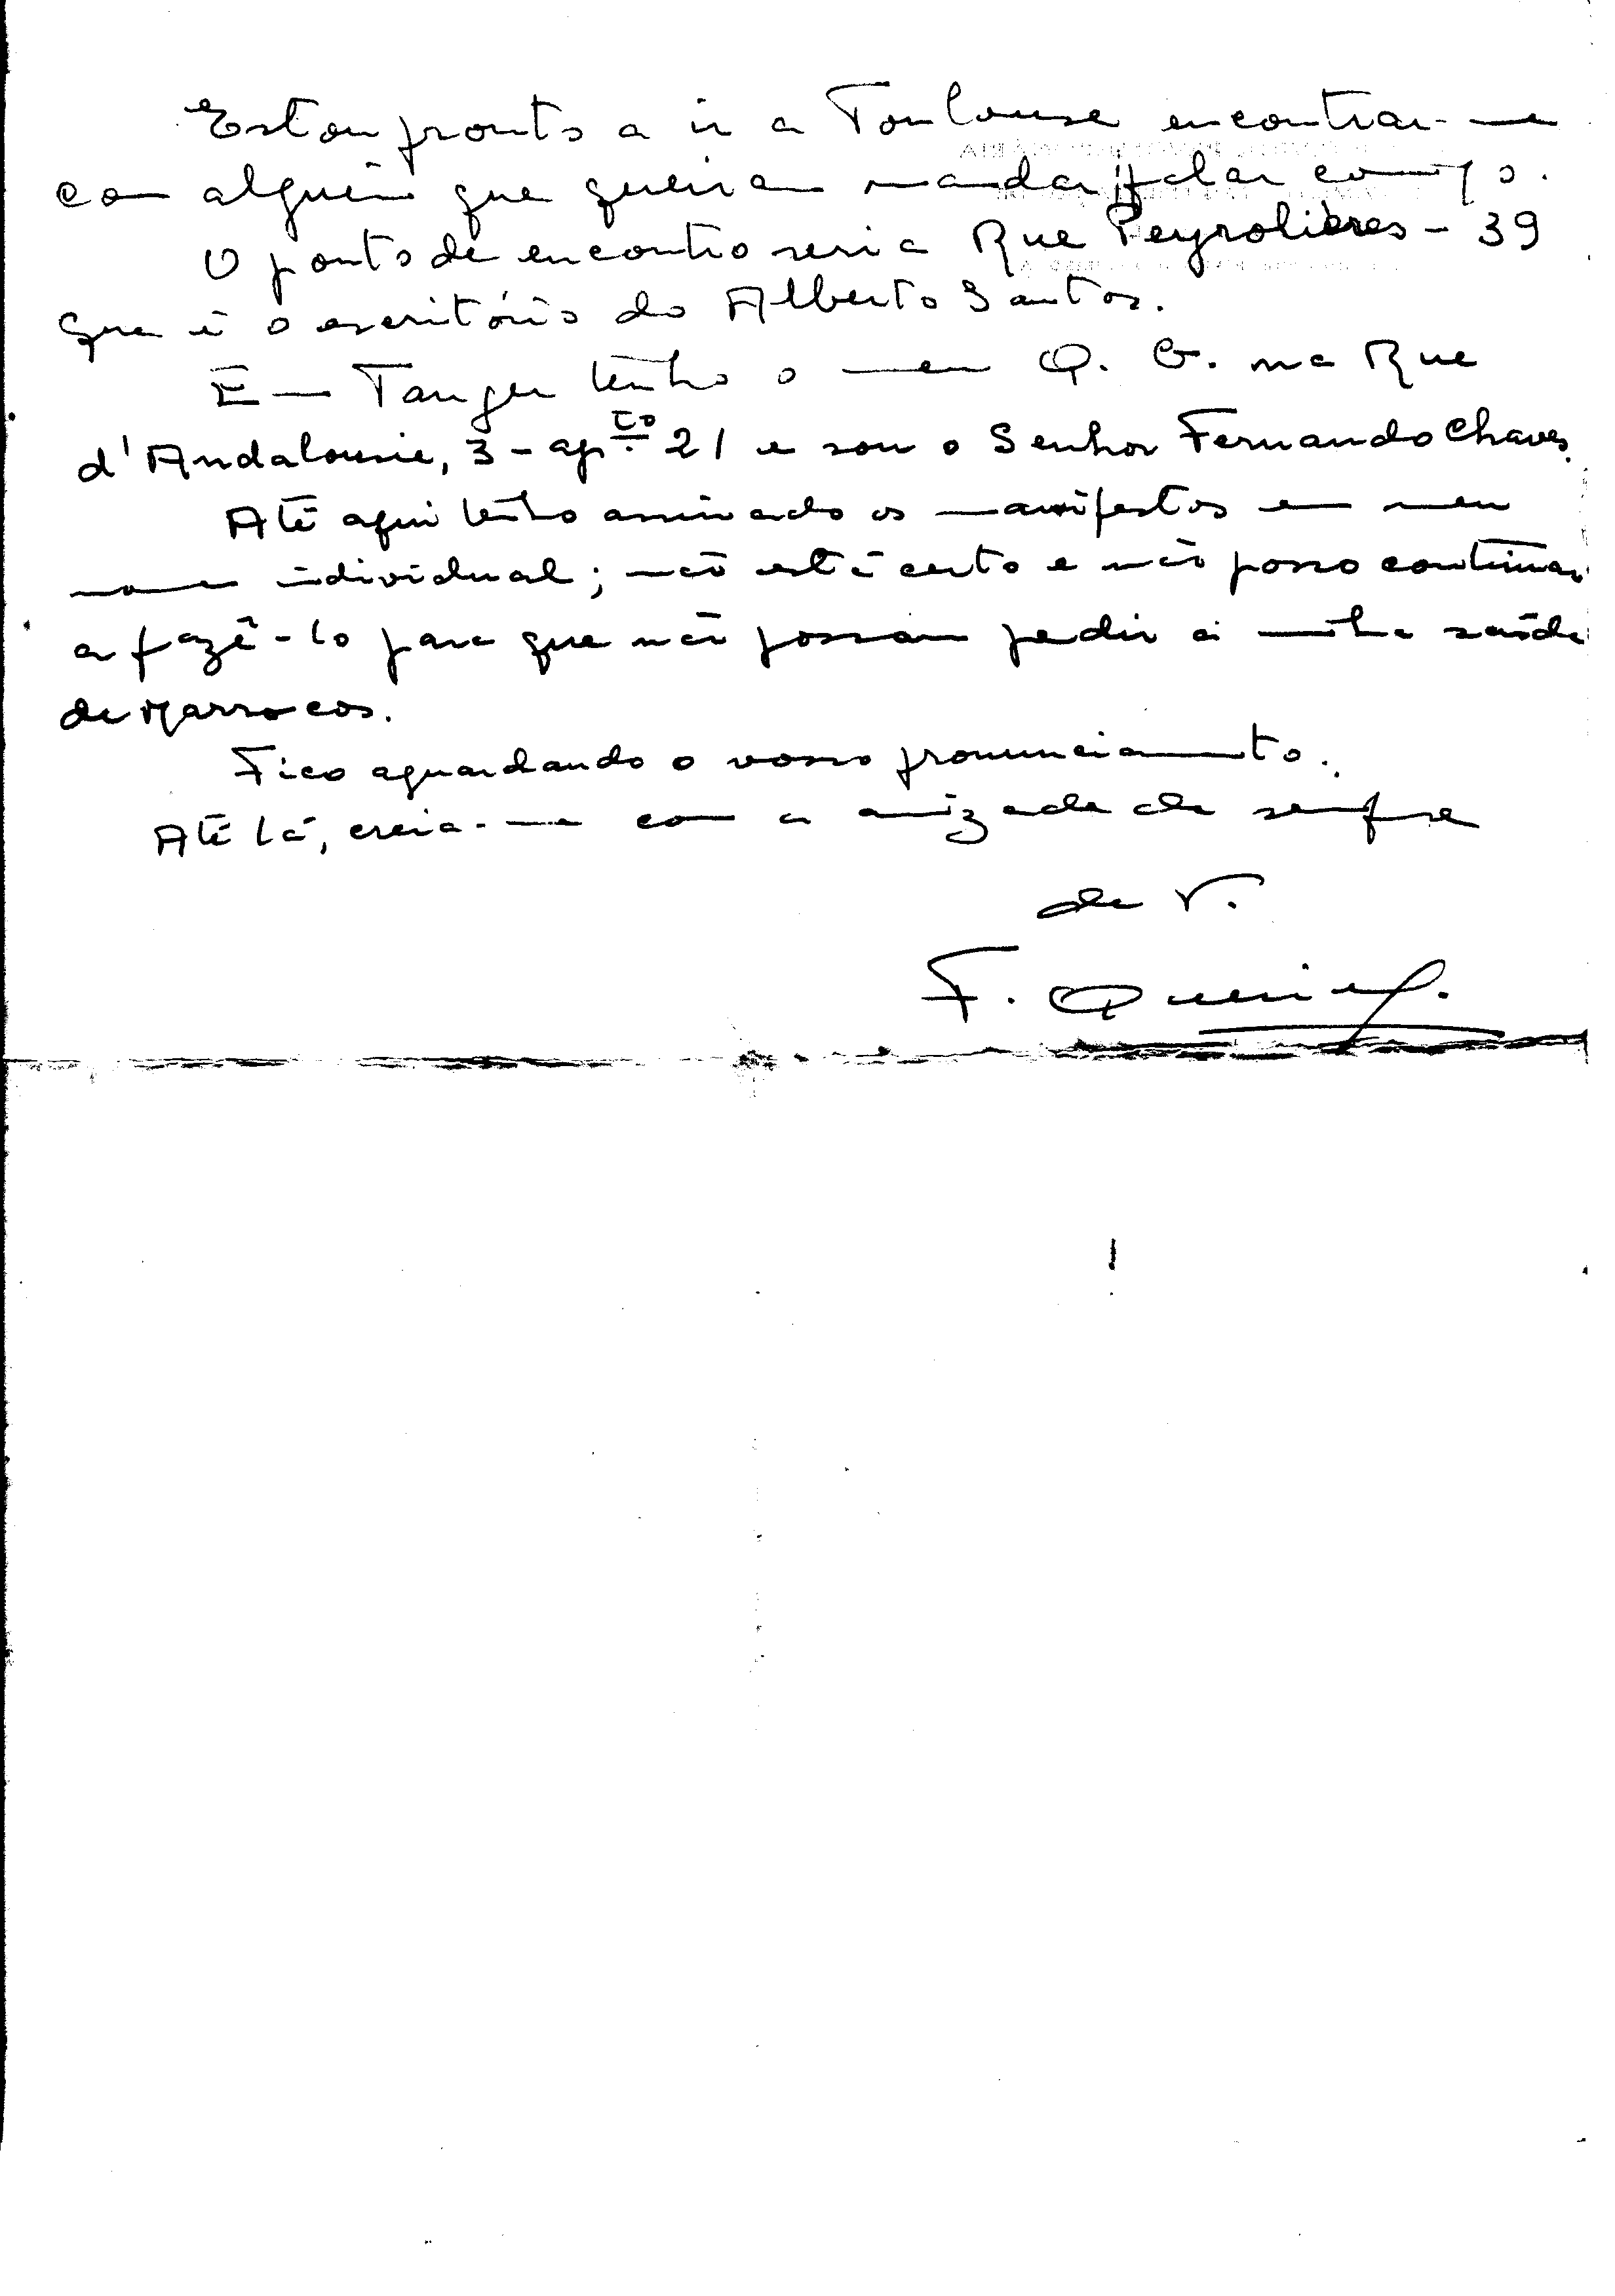 Estou pronto a ir a Toulouse encontrar-me
com alguém que queiram mandar falar comigo.
O ponto de encontro seria Rue Peyrolières - 39
que é o escritório do Alberto Santos.
Em Tanger tenho o meu Q. G. na Rue
d'Andalousie, 3 - ap.to 21 e sou o Senhor Fernando Chaves.
Até aqui tenho assinado os manifestos em meu
nome individual; não está certo e não posso continuar
a fazê-lo para que não possam pedir a minha saída
de Marrocos.
Fico aguardando o vosso pronunciamento.
Até lá, creia-me com a amizade de sempre
de V.
F. Queiroga.